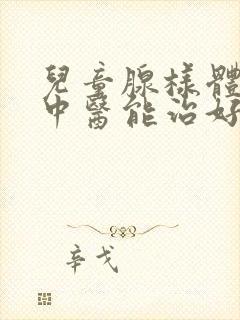 兒童腺樣體
中醫能治好
辛戈